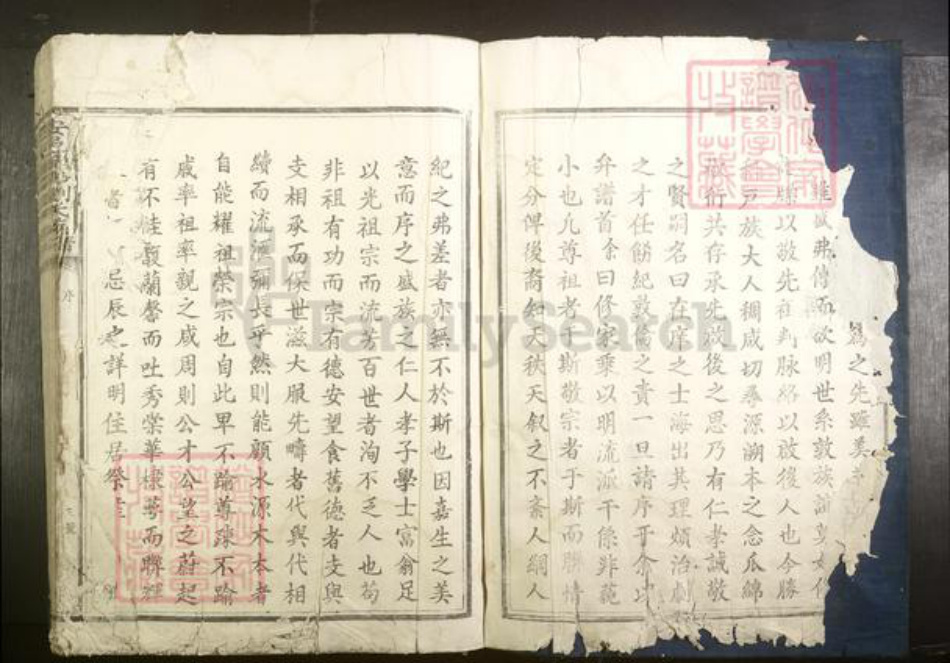 為之先雖美
雖盛弗傳而欲明世系敦族誼
以敬先祖判脉絡以啟後人也今勝
戶族大人稠咸切尋源溯本之念瓜綿
衍共存承先啟後之思乃有仁孝誠敬
之賢嗣名曰在庠之士海出其理煩治劇
之才任飭紀敦倫之責一旦請序于余以
弁譜首余曰修家乘以明流派干係非藐
小也凡尊祖者于斯敬宗者于斯而聯情
定分俾後裔知天秩天叙之不紊人綱人
紀之弗差者亦無不於斯也因嘉生之美
意而序之盛族之仁人孝子學士富翁足
以光祖宗而流芳百世者洵不乏人也苟
非祖有功而宗有德安望食舊德者支與
支相承而保世滋大服先疇者代與代相
續而流澤彌長乎然則能顧水源木本者
自能耀祖榮宗也自此卑不踰尊疎不踰
戚率祖率親之咸周則公才公望之蔚起
有不桂馥蘭馨而吐秀棠華棣萼而聯輝
者 忌辰之詳明住居祭
序
FamilySearch